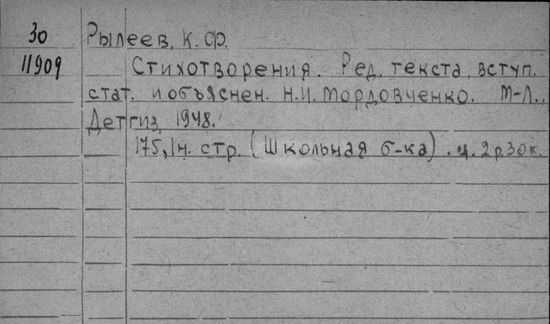 30 Рылеев, К. Ф.
11909 Стихотворения. Ред. текста, вступ.
стат. и объяснен. Н.И. Мордовченко. М-Л.,
Детгиз, 1948.
175, 1н. стр. (Школьная б-ка). ц. 2р.30к.